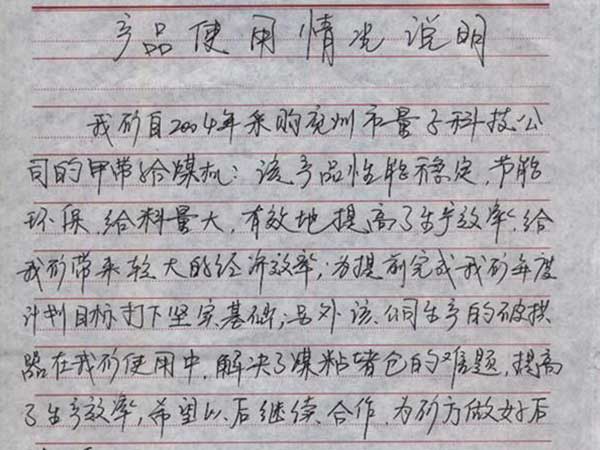 产品使用情况说明
我矿自2004年采购兖州市量子科技公
司的甲带给煤机：该产品性能稳定，节能
环保，给料量大，有效地提高了生产效率，给
我矿带来较大的经济效率；为提前完成我矿年度
计划目标打下坚实基础；另外该公司生产的破拱
器在我矿使用中，解决了煤粘堵仓的难题，提高
了生产效率，希望以后继续合作，为矿方做好后